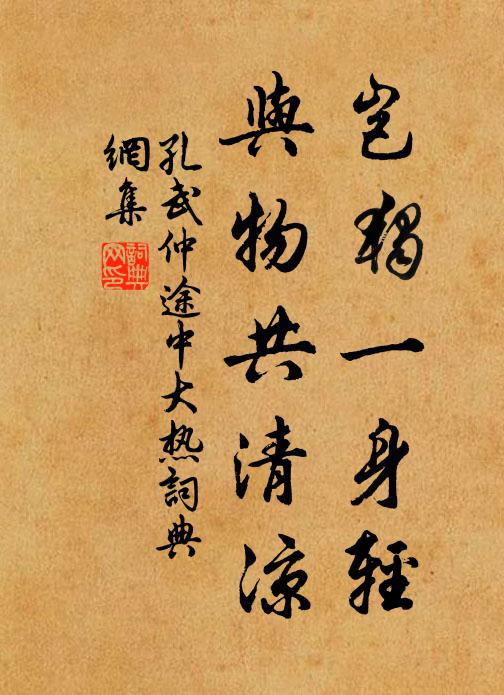 豈獨一身輕
與物共清涼
孔武仲途中大热詞典
網集
詞典
网印